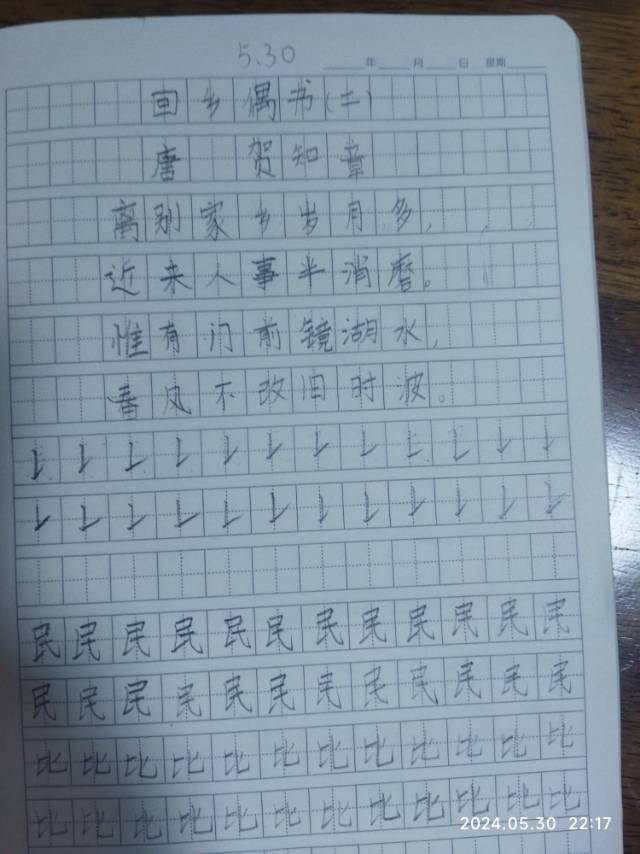 5.30
年 月 日 星期
回乡偶书(二)
唐 贺知章
离别家乡岁月多,
近来人事半消磨。
惟有门前镜湖水,
春风不改旧时波。
民民民民民民民民民民民民
民民民民民民民民民民民民
比比比比比比比比比比比比
比比比比比比比比比比比比
2024.05.30 22:17